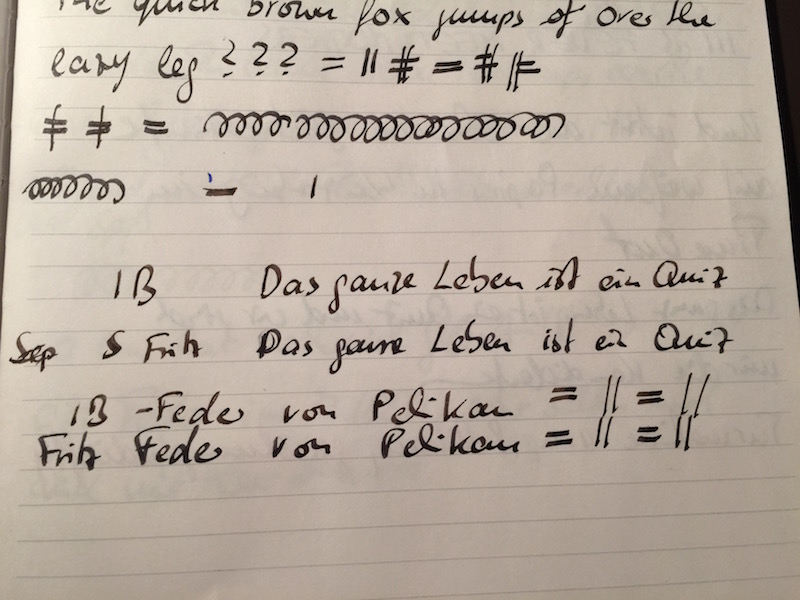 The quick brown fox jumps of over the
lazy leg ? ? ? = || # = # ||=
‡ ‡ =
- ı
IB Das ganze Leben ist ein Quiz
Sep S Fritz Das ganze Leben ist ein Quiz
IB -Feder von Pelikan = || = ||
Fritz Feder von Pelikan = || = ||